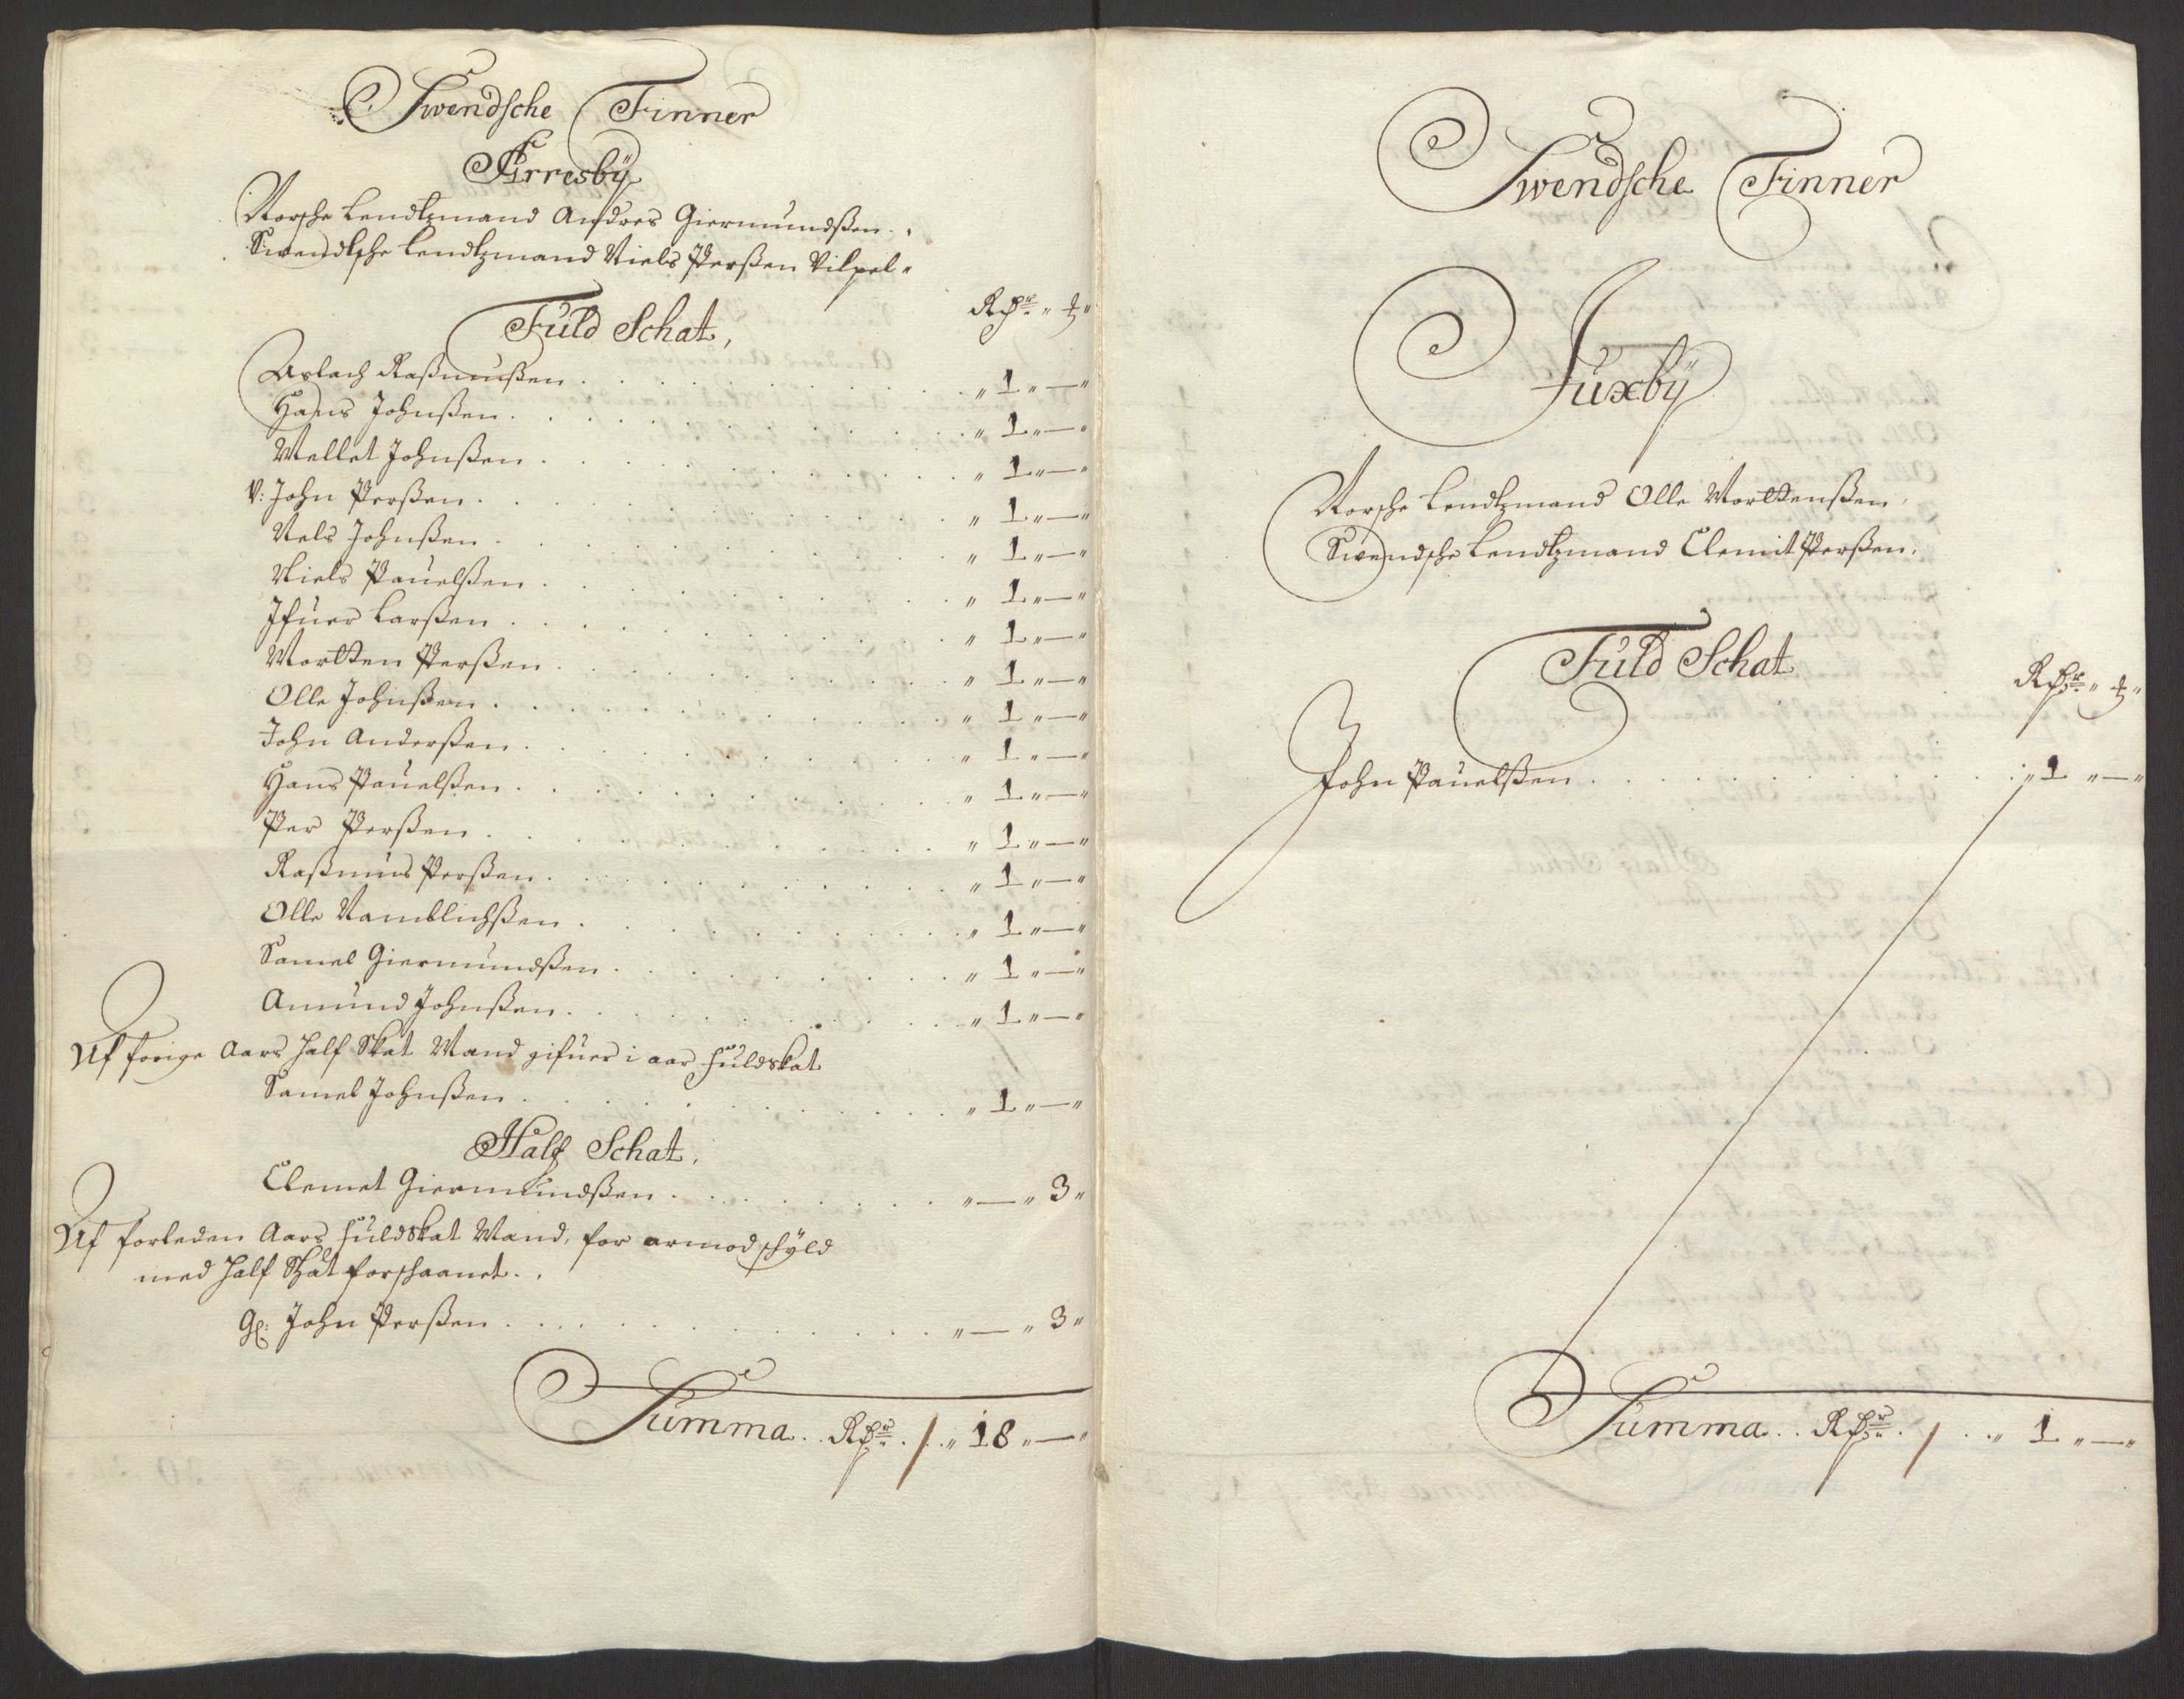 Swendsche Finner
Arresby
Norsche Lendtzmand Anders Giermundßen
Swendsche Lendtzmand Niels Perßen Vilpel
Fuld Schat,
Aslach Raßmusßen . . . " 1 " — "
Hans Johnßen . . . " 1 " — "
Mellet Johnßen . . . " 1 " — "
V: John Perßen . . . " 1 " — "
Nels Johnßen . . . " 1 " — "
Niels Pauelßen . . . " 1 " — "
Ifuer Larßen . . . " 1 " — "
Mortten Perßen . . . " 1 " — "
Olle Johnßen . . . " 1 " — "
John Anderßen . . . " 1 " — "
Hans Pauelßen . . . " 1 " — "
Per Perßen . . . " 1 " — "
Raßmus Perßen . . . " 1 " — "
Olle Namblichßen . . . " 1 " — "
Samel Giermundßen . . . " 1 " — "
Amund Johnßen . . . " 1 " — "
Af forige Aars half Skat Mand gifuer i aar fuldskat
Samel Johnßen . . . " 1 " — "
Half Schat.
Clemet Giermundßen . . . " — " 3 "
Af forleden Aars fuldskat Mand, for armod schyld
med half Skat forschaanet.
Gl: John Perßen . . . " — " 3 "
Summa . . " 18 " — "
Swendsche Finner
Juxby
Norsche Lendtzmand Olle Morttenßen.
Swendsche Lendtzmand Clemit Perßen.
Fuld Schat
John Pauelßen . . . " 1 " — "
Summa . . " 1 " — "